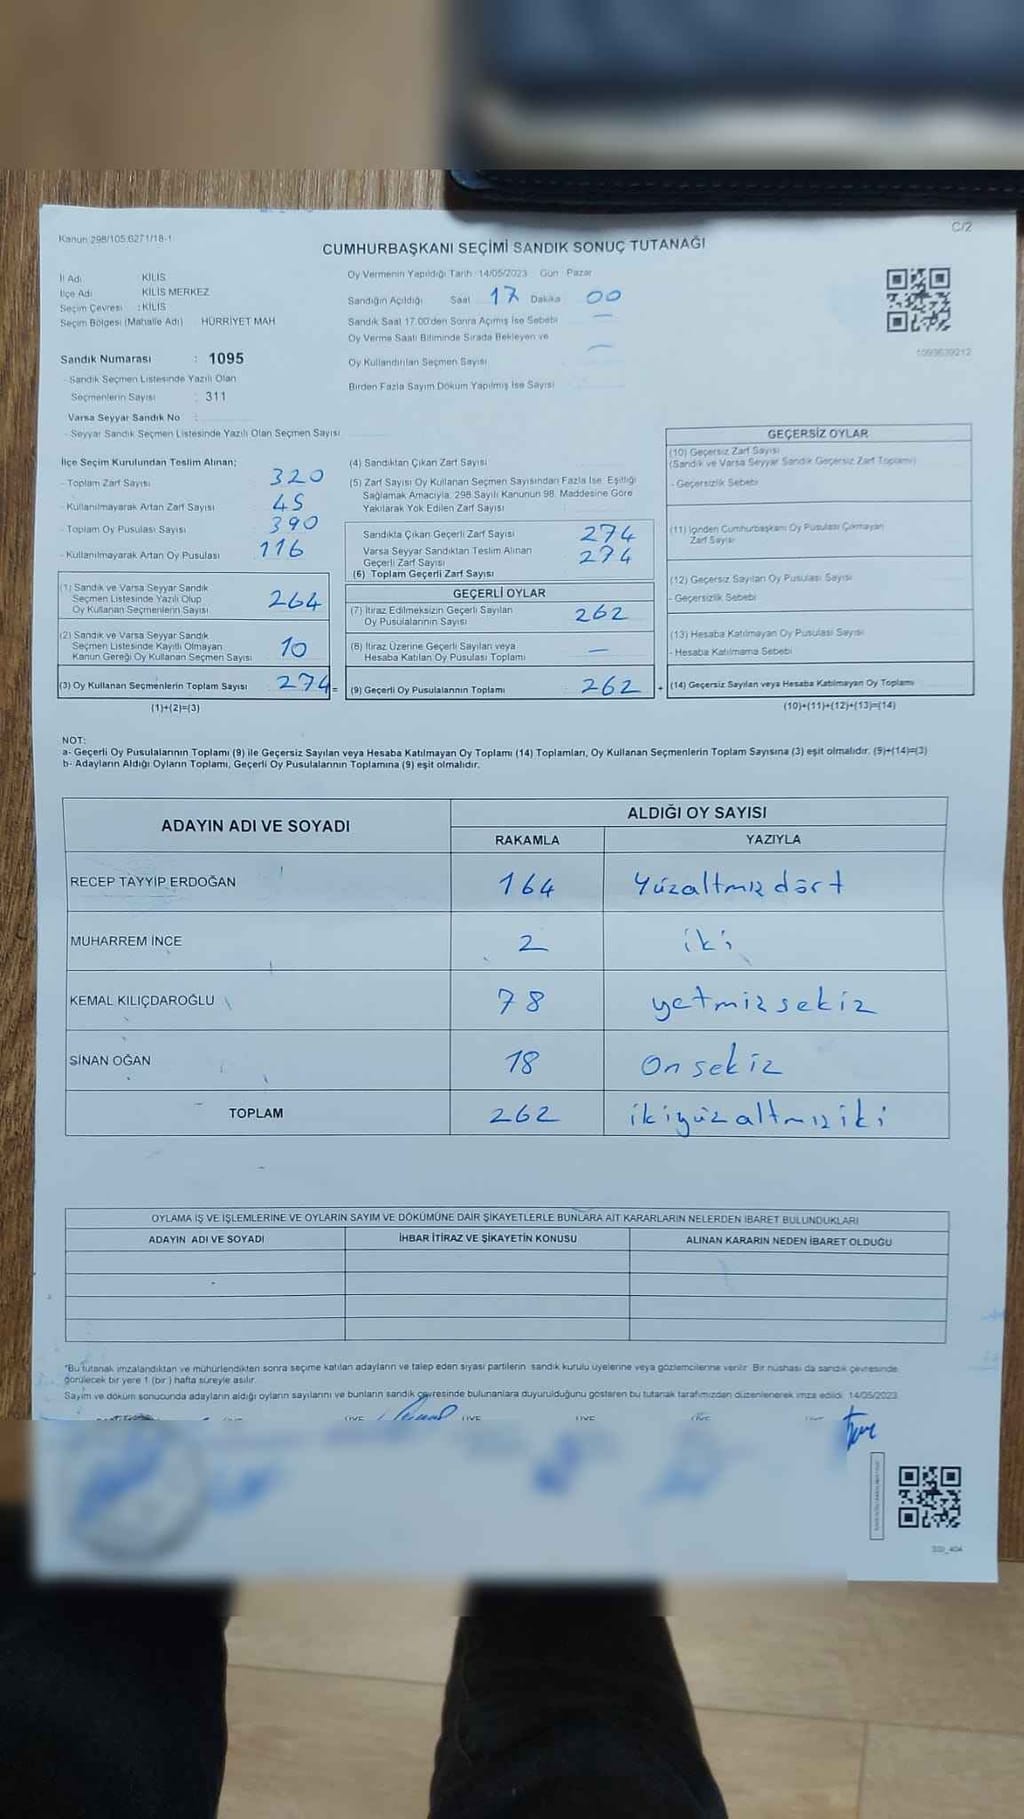 Kanun:298/105;6271/18-1
C/2
CUMHURBAŞKANI SEÇİMİ SANDIK SONUÇ TUTANAĞI
İl Adı : KİLİS
İlçe Adı : KİLİS MERKEZ
Seçim Çevresi : KİLİS
Seçim Bölgesi (Mahalle Adı) HÜRRİYET MAH
Sandık Numarası : 1095
- Sandık Seçmen Listesinde Yazılı Olan
Seçmenlerin Sayısı : 311
Varsa Seyyar Sandık No :
- Seyyar Sandık Seçmen Listesinde Yazılı Olan Seçmen Sayısı
Oy Vermenin Yapıldığı Tarih :14/05/2023 Gün : Pazar
Sandığın Açıldığı Saat 17 Dakika 00
Sandık Saat 17.00'den Sonra Açımış İse Sebebi —
Oy Verme Saati Bitiminde Sırada Bekleyen ve
Oy Kullandırılan Seçmen Sayısı —
Birden Fazla Sayım Döküm Yapılmış İse Sayısı
1093639212
İlçe Seçim Kurulundan Teslim Alınan;
- Toplam Zarf Sayısı 320
- Kullanılmayarak Artan Zarf Sayısı 45
- Toplam Oy Pusulası Sayısı 390
- Kullanılmayarak Artan Oy Pusulası 116
(1) Sandık ve Varsa Seyyar Sandık
Seçmen Listesinde Yazılı Olup
Oy Kullanan Seçmenlerin Sayısı 264
(2) Sandık ve Varsa Seyyar Sandık
Seçmen Listesinde Kayıtlı Olmayan
Kanun Gereği Oy Kullanan Seçmen Sayısı 10
(3) Oy Kullanan Seçmenlerin Toplam Sayısı 274 =
(1)+(2)=(3)
(4) Sandıktan Çıkan Zarf Sayısı
(5) Zarf Sayısı Oy Kullanan Seçmen Sayısından Fazla İse, Eşitliği
Sağlamak Amacıyla, 298 Sayılı Kanunun 98. Maddesine Göre
Yakılarak Yok Edilen Zarf Sayısı :
Sandıkta Çıkan Geçerli Zarf Sayısı 274
Varsa Seyyar Sandıktan Teslim Alınan
Geçerli Zarf Sayısı 274
(6) Toplam Geçerli Zarf Sayısı
GEÇERLİ OYLAR
(7) İtiraz Edilmeksizin Geçerli Sayılan
Oy Pusulalarının Sayısı 262
(8) İtiraz Üzerine Geçerli Sayılan veya
Hesaba Katılan Oy Pusulası Toplamı —
(9) Geçerli Oy Pusulalarının Toplamı : 262 +
GEÇERSİZ OYLAR
(10) Geçersiz Zarf Sayısı
(Sandık ve Varsa Seyyar Sandık Geçersiz Zarf Toplamı)
- Geçersizlik Sebebi
(11) İçinden Cumhurbaşkanı Oy Pusulası Çıkmayan
Zarf Sayısı
(12) Geçersiz Sayılan Oy Pusulası Sayısı
- Geçersizlik Sebebi
(13) Hesaba Katılmayan Oy Pusulası Sayısı
- Hesaba Katılmama Sebebi
(14) Geçersiz Sayılan veya Hesaba Katılmayan Oy Toplamı
(10)+(11)+(12)+(13)=(14)
NOT:
a- Geçerli Oy Pusulalarının Toplamı (9) ile Geçersiz Sayılan veya Hesaba Katılmayan Oy Toplamı (14) Toplamları, Oy Kullanan Seçmenlerin Toplam Sayısına (3) eşit olmalıdır. (9)+(14)=(3)
b- Adayların Aldığı Oyların Toplamı, Geçerli Oy Pusulalarının Toplamına (9) eşit olmalıdır.
ADAYIN ADI VE SOYADI
ALDIĞI OY SAYISI
RAKAMLA YAZIYLA
RECEP TAYYİP ERDOĞAN 164 Yüzaltmız dört
MUHARREM İNCE 2 iki
KEMAL KILIÇDAROĞLU 78 yetmiz sekiz
SİNAN OĞAN 18 On sekiz
TOPLAM 262 ikiyüz altmız iki
OYLAMA İŞ VE İŞLEMLERİNE VE OYLARIN SAYIM VE DÖKÜMÜNE DAİR ŞİKAYETLERLE BUNLARA AİT KARARLARIN NELERDEN İBARET BULUNDUKLARI
ADAYIN ADI VE SOYADI İHBAR İTİRAZ VE ŞİKAYETİN KONUSU ALINAN KARARIN NEDEN İBARET OLDUĞU
*Bu tutanak imzalandıktan ve mühürlendikten sonra seçime katılan adayların ve talep eden siyasi partilerin sandık kurulu üyelerine veya gözlemcilerine verilir. Bir nüshası da sandık çevresinde
görülecek bir yere 1 (bir) hafta süreyle asılır.
Sayım ve döküm sonucunda adayların aldığı oyların sayılarını ve bunların sandık çevresinde bulunanlara duyurulduğunu gösteren bu tutanak tarafımızdan düzenlenerek imza edildi. 14/05/2023